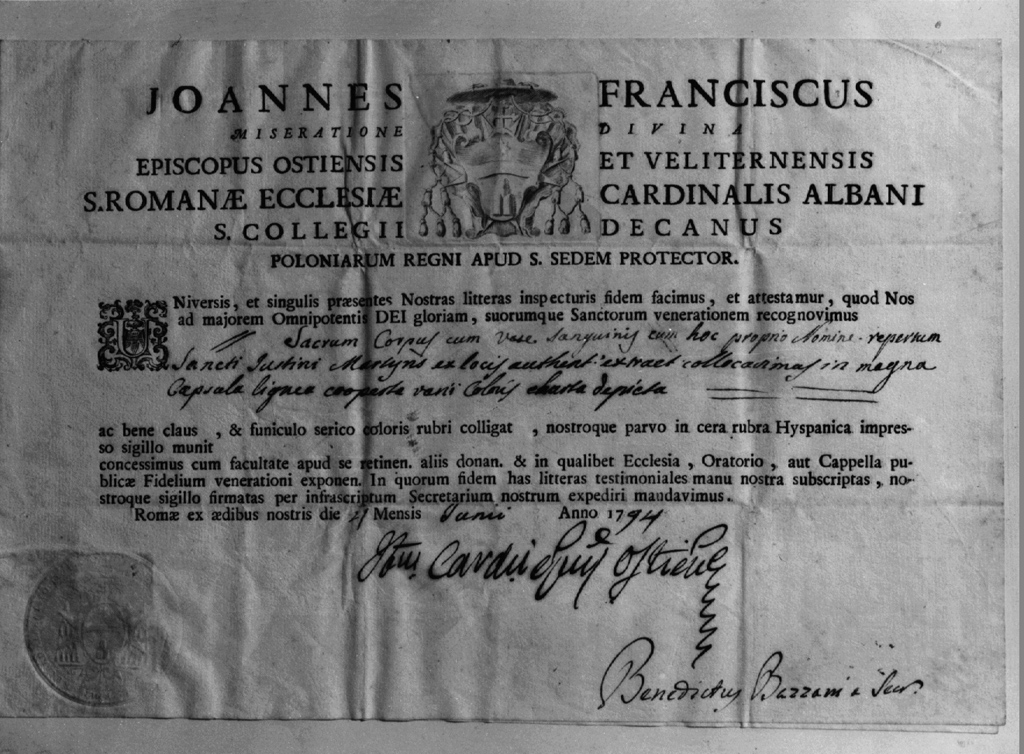 JOANNES FRANCISCUS
MISERATIONE DIVINA
EPISCOPUS OSTIENSIS ET VELITERNENSIS
S. ROMANÆ ECCLESIÆ CARDINALIS ALBANI
S. COLLEGII DECANUS
POLONIARUM REGNI APUD S. SEDEM PROTECTOR.
UNiversis, et singulis præsentes Nostras litteras inspecturis fidem facimus, et attestamur, quod Nos
ad majorem Omnipotentis DEI gloriam, suorumque Sanctorum venerationem recognovimus
Sacrum Corpus cum vase sanguinis cum hoc proprio Nomine repertum
Sancti Justini Martyris ex locis authent. extract collocavimus in magna
Capsula lignea cooperta varii Coloris charta depicta
ac bene claus , & funiculo serico coloris rubri colligat , nostroque parvo in cera rubra Hyspanica impres-
so sigillo munit
concessimus cum facultate apud se retinen. aliis donan. & in qualibet Ecclesia , Oratorio , aut Cappella pu-
blicæ Fidelium venerationi exponen. In quorum fidem has litteras testimoniales manu nostra subscriptas , no-
stroque sigillo firmatas per infrascriptum Secretarium nostrum expediri mandavimus.
Romæ ex ædibus nostris die Mensis Junii Anno 1794
Card.
Benedictus Bazzani